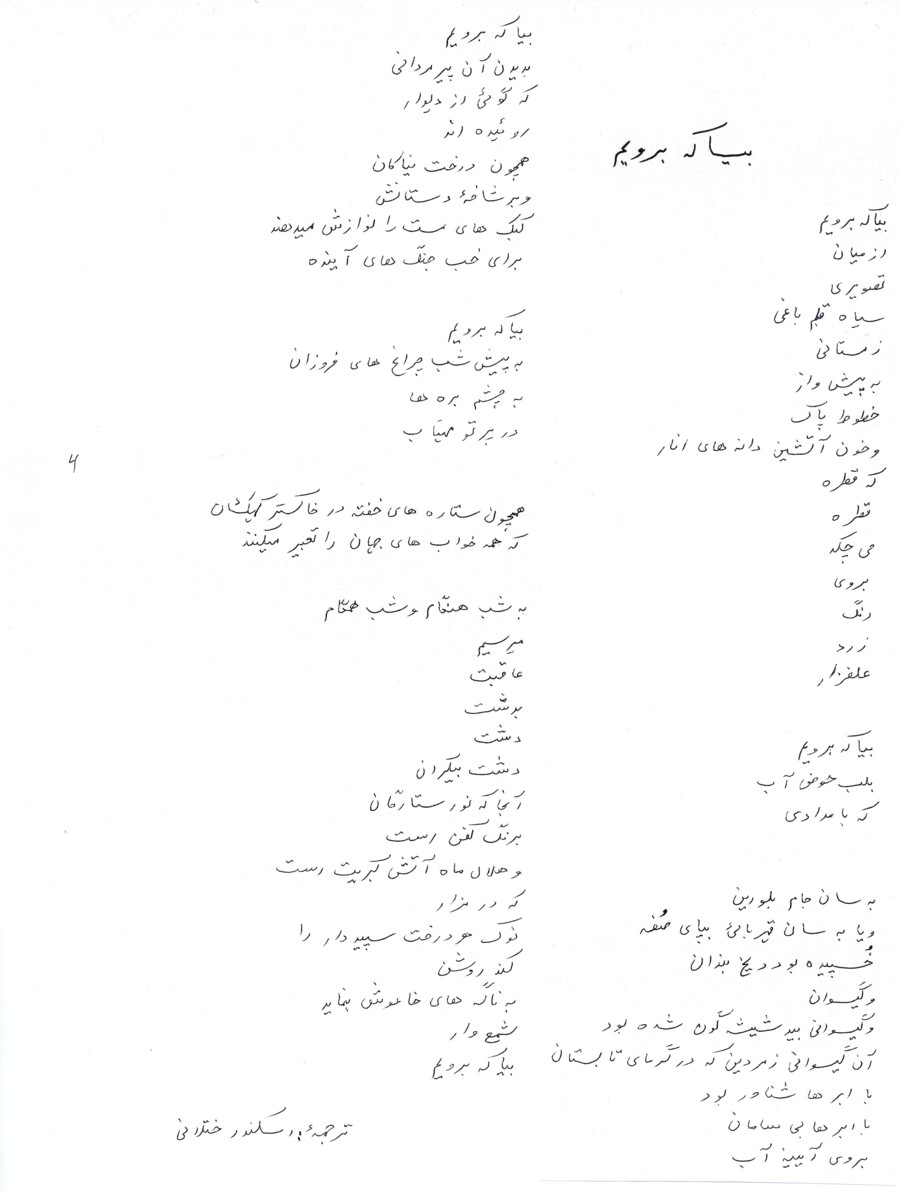 بیا که برویم
بیا که برویم
از میان
تصویری
سیاه قلم باغی
زمستانی
به پیش واز
خطوط پاک
و خون آتشین دانه های انار
که قطره
قطره
می چکد
بروی
رنگ
زرد
علفزار
بیا که برویم
بلب حوض آب
که بامدادی
به سان جام بلورین
ویا به سان قربانئ بپای صُفه
خُسپیده بود در یخ بندان
وگیسوان
وگیسوانی بید شیشه گون شده بود
آن گیسوانی زمردین که در گرمای تابستان
با ابر ها شناور بود
با ابر ها بی سامان
بروی آیینهٔ آب
بیا که برویم
بدیدن آن پیر مردانی
که گوئی از دیوار
روئیده اند
همچون درخت نیاکان
وبر شاخهٔ دستانش
کبک های مست را نوازش میدهند
برای خب جنگ های آینده
بیا که برویم
به پیش شب چراغ های فروزان
به چشم بره ها
در پرتو مهتاب
همچون ستاره های خفته در خاکستر کهکشان
که همه خواب های جهان را تعبیر میکنند
به شب هنگام و شب همگام
میرسیم
عاقبت
بدشت
دشت
دشت بیکران
آنجا که نور ستارگان
برنگ کفن رست
و هلال ماه آتش کبریت رست
که در مزار
نوک هر درخت سپیدار را
کند روشن
به ناگه های خاموش بنماید
شمع وار
بیا که برویم
ترجمهٔ: اسکندر ختلانی
4